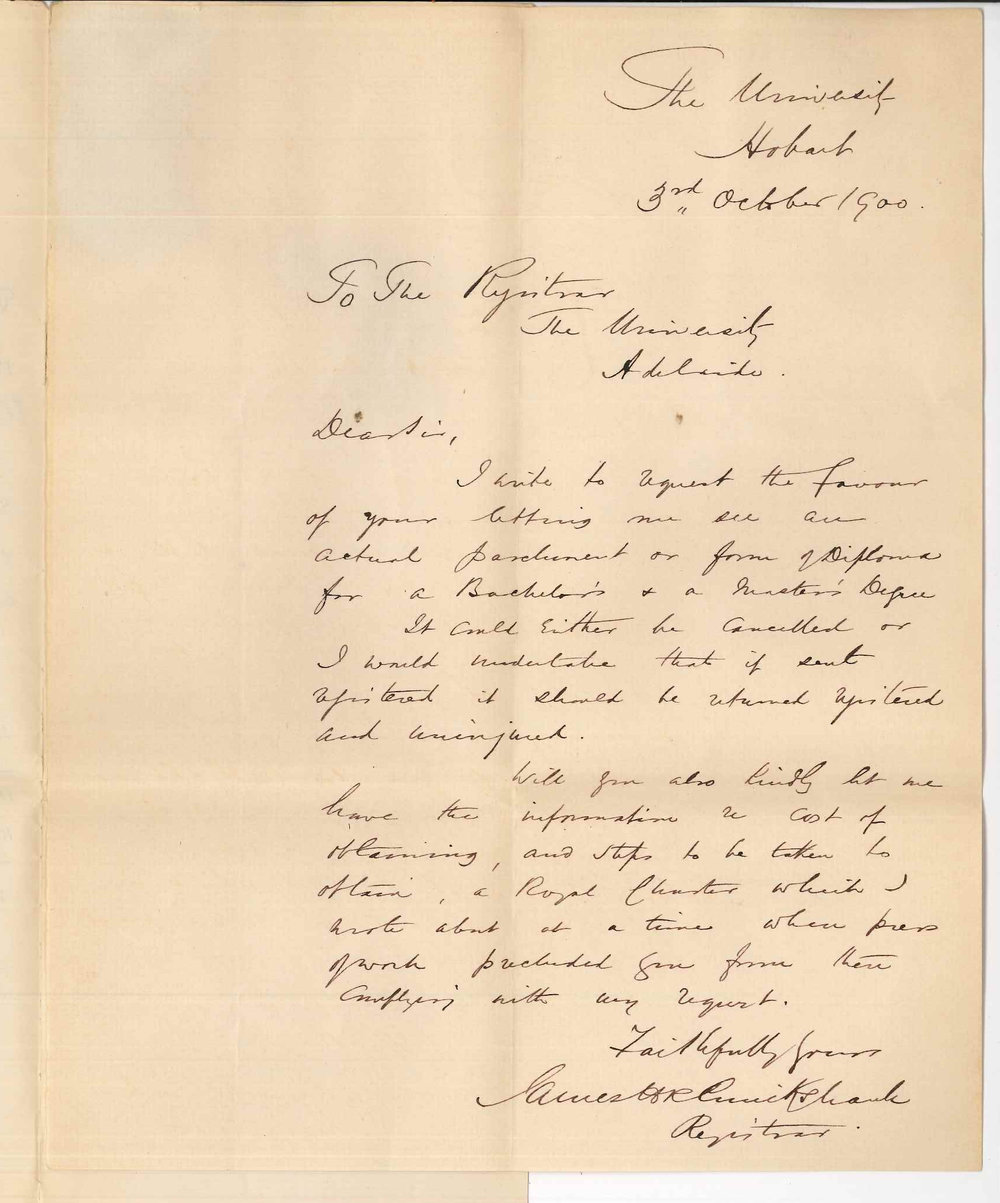 The University
Hobart
3rd October 1900.
To The Registrar
The University
Adelaide.
Dear Sir,
I write to request the favour
of your letting me see an
actual parchment or form of Diploma
for a Bachelor's & a Master's Degree
It could Either be cancelled or
I would undertake that if sent
registered it should be returned registered
and uninjured.
Will you also kindly let me
have the information re cost of
obtaining, and steps to be taken to
obtain, a Royal Charter which I
wrote about at a time when press
of work precluded you from then
complying with my request.
Faithfully yours
James H R Cruickshank
Registrar.